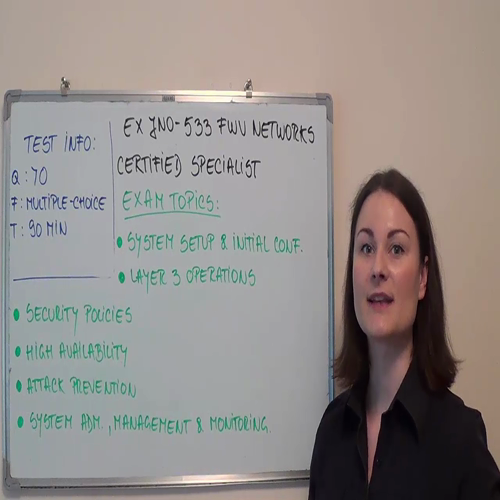 EX JN0-533 FWV NETWORKS
CERTIFIED SPECIALIST
TEST INFO:
Q : 70
F : MULTIPLE-CHOICE
T : 90 MIN
EXAM TOPICS:
• SYSTEM SETUP & INITIAL CONF.
• LAYER 3 OPERATIONS
• SECURITY POLICIES
• HIGH AVAILABILITY
• ATTACK PREVENTION
• SYSTEM ADM., MANAGEMENT & MONITORING